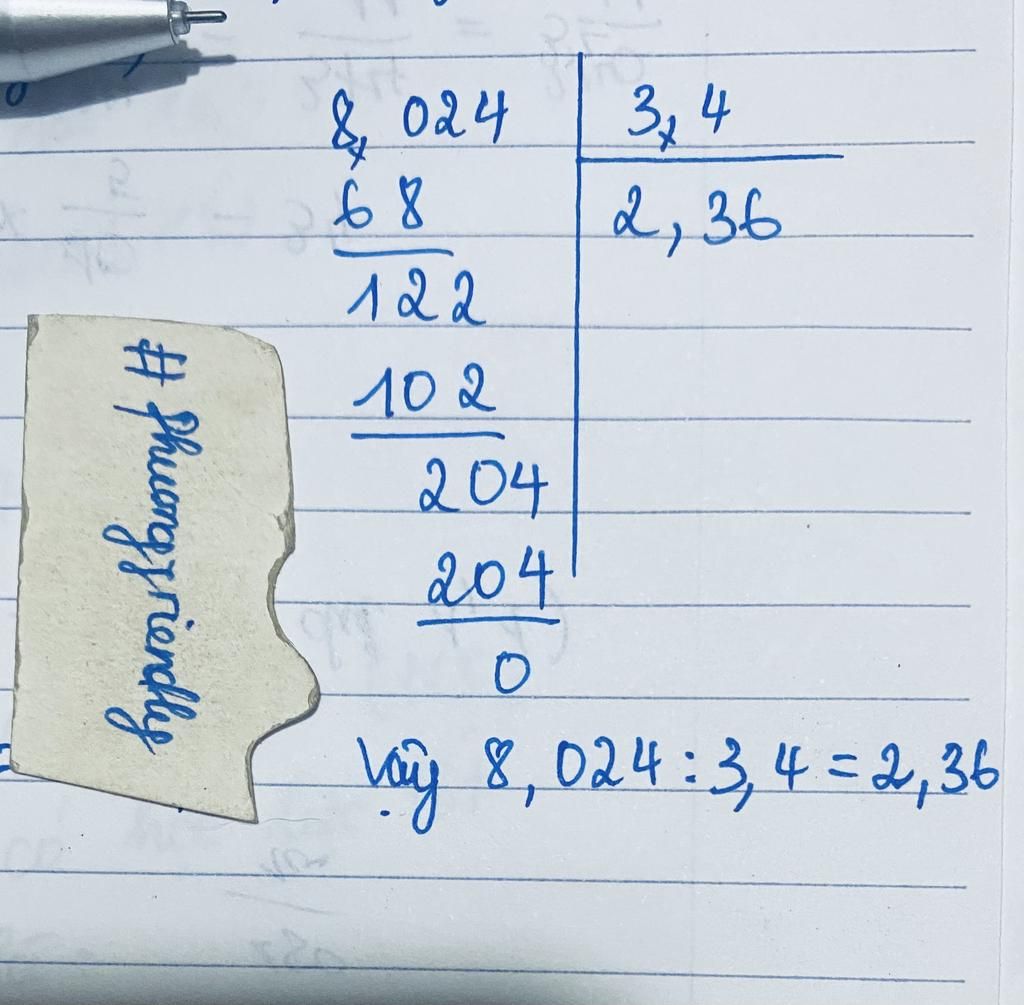 8, 024 3, 4
68 2, 36
122
102
204
204
0
Vậy 8, 024 : 3, 4 = 2, 36
# phuongfriendly